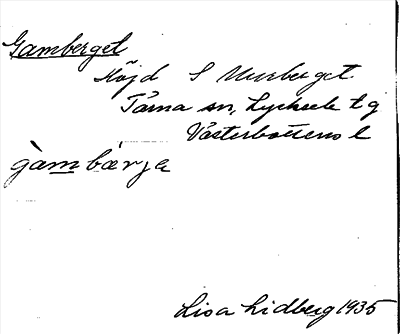 Gamberget
Höjd S Murberget
Tärna sn, Lycksele tg
Västerbottens l
gàmbærja
Lisa Lidberg 1935